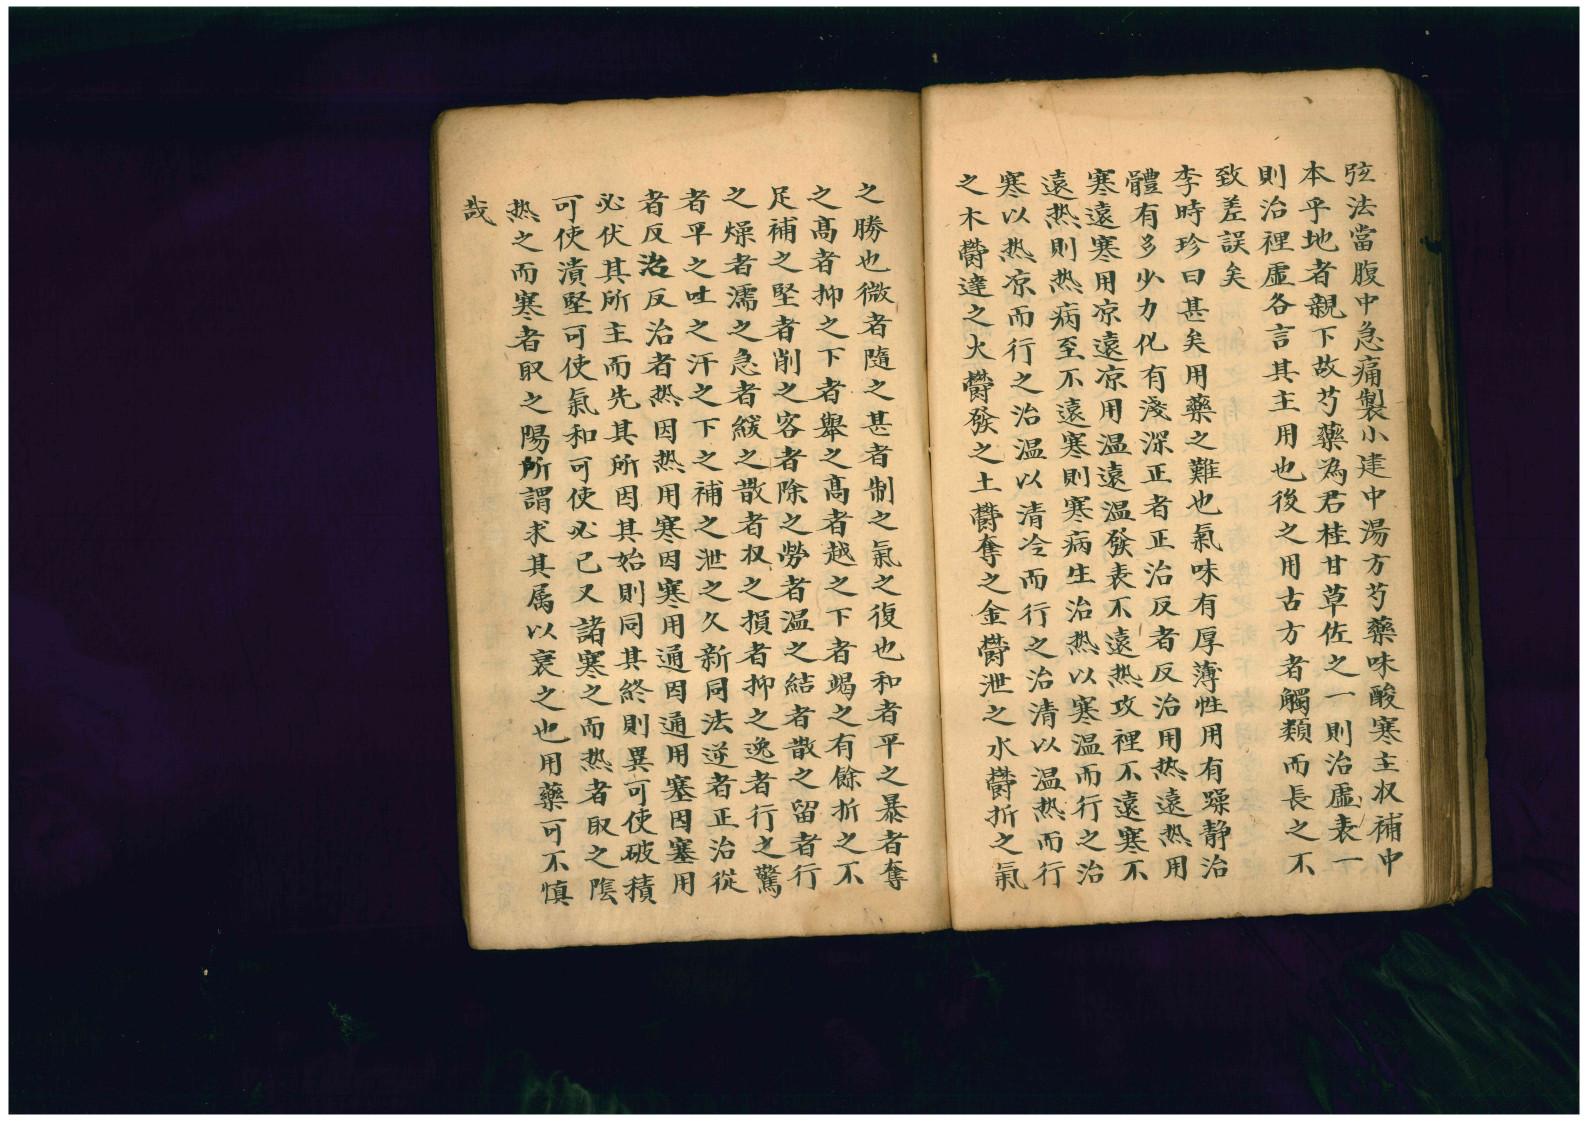 弦法當腹中急痛製小建中湯方芍藥味酸寒主収補中
本乎地者親下故芍藥為君桂甘草佐之一則治虛表一
則治裡虛各言其主用也後之用古方者觸類而長之不
致差誤矣
李時珍曰甚矣用藥之難也氣味有厚薄性用有躁静治
體有多少力化有淺深正者正治反者反治用热遠热用
寒遠寒用凉遠凉用温遠温發表不遠热攻裡不遠寒不
遠热則热病至不遠寒則寒病生治热以寒温而行之治
寒以热凉而行之治温以清冷而行之治清以温热而行
之木欝達之火欝發之土欝奪之金欝泄之水欝折之氣
之勝也微者隨之甚者制之氣之復也和者平之暴者奪
之髙者抑之下者舉之髙者越之下者竭之有餘折之不
足補之堅者削之客者除之勞者温之結者散之留者行
之燥者濡之急者緩之散者収之損者抑之逸者行之驚
者平之吐之汗之下之補之泄之久新同法逆者正治從
者反治反治者热因热用寒因寒用通因通用塞因塞用
必伏其所主而先其所因其始則同其終則異可使破積
可使潰堅可使氣和可使必已又諸寒之而热者取之陰
热之而寒者取之陽所謂求其属以衰之也用藥可不慎
哉